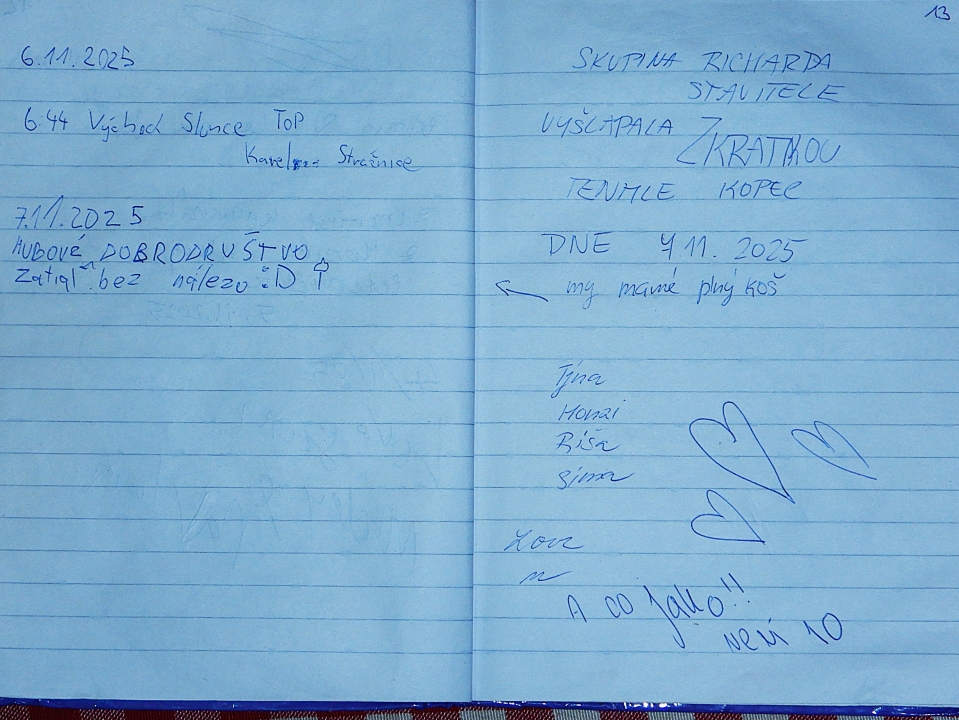 6.11.2025
6.44 Východ Slunce TOP
Karel Stražnice
7.11.2025
HUBOVÉ DOBRODRUŠTVO
Zatiaľ bez nálezo :D
13
SKUPINA RICHARDA
STAVITELE
VYŠLAPALA ZKRATKOU
TENHLE KOPEC
DNE 7 11. 2025
my mamé plný KOŠ
Týna
Honzi
Ríša
Sima
Love
A co jako!!
není 10